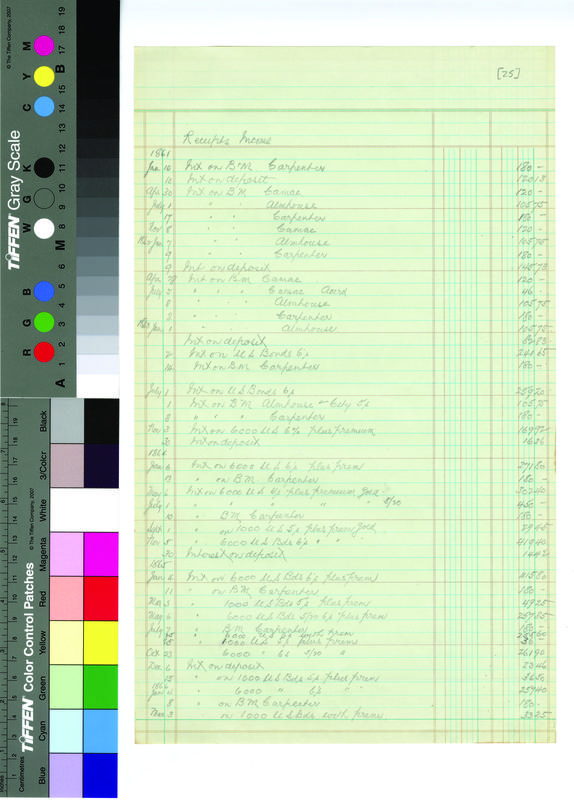 [25]
Receipts Income
1861
Jan 10 Int on B M Carpenter 180 -
12 Int on deposit 120 13
Apr 30 Int on B M Camac 120 -
July 1 " " " Almhouse 105 75
17 " " Carpenter 180 -
Nov 8 " " Camac 120 -
Jan 7 " " Almhouse 105 75
9 " " Carpenter 180 -
9 Int on deposit 145 73
Apr Int on B M Camac 120 -
July " " " Camac 46 -
8 " " Almhouse 105 75
2 " " Carpenter 180 -
Jan 1 " " Almhouse 105 75
Int on deposit
2 Int on U S Bonds 6s
14 Int on B M Carpenter 180 -
July 1 Int on U S Bonds 6s 259 20
1 Int on B M Almhouse + City 5s 105 75
8 " " " Carpenter 180 -
Nov 3 Int on 6000 U S 6% plus premium
30 Int on deposit 16 26
1864
Jan 6 Int on 6000 U S 6s plus prem 271 80
13 " on B M Carpenter 180 -
Int on 6000 U S 6s plus premium Gold
July 1 " " " " " 5/20 450 -
10 " B M Carpenter 180 -
Sept 1 " on 1000 U S 5s plus prem Gold
Nov 5 " 6000 U S Bds 6s " " 419 40
30 Interest on deposit 144 2
1865
Jan 4 Int on 6000 U S Bds 6s plus prem 415 80
11 " on B M Carpenter 180 -
Mar 3 " 1000 U S Bds 5s plus prem 49 25
May 6 " 6000 U S Bds 5/20 6s plus prem 257 85
July " B M Carpenter 180 -
" 6000 U S 6s with prem
" 1000 U S 5s plus prem
Oct 23 " 6000 " 6s 5/20 " 261 90
Dec 6 Int on deposit 23 46
15 " on 1000 U S Bds plus prem 36 50
1866
Jan 4 " 6000 " 6s " " 259 40
8 " on B M Carpenter 180 -
Mar 3 " on 1000 U S Bds with prem 33 25
TIFFEN Gray Scale
© The Tiffen Company, 2007
R G B W G K C Y M
A 1 2 3 4 5 6 M 8 9 10 11 12 13 14 15 B 17 18 19
TIFFEN Color Control Patches
© The Tiffen Company, 2007
Blue Cyan Green Yellow Red Magenta White 3/Color Black
Centimetres
Inches